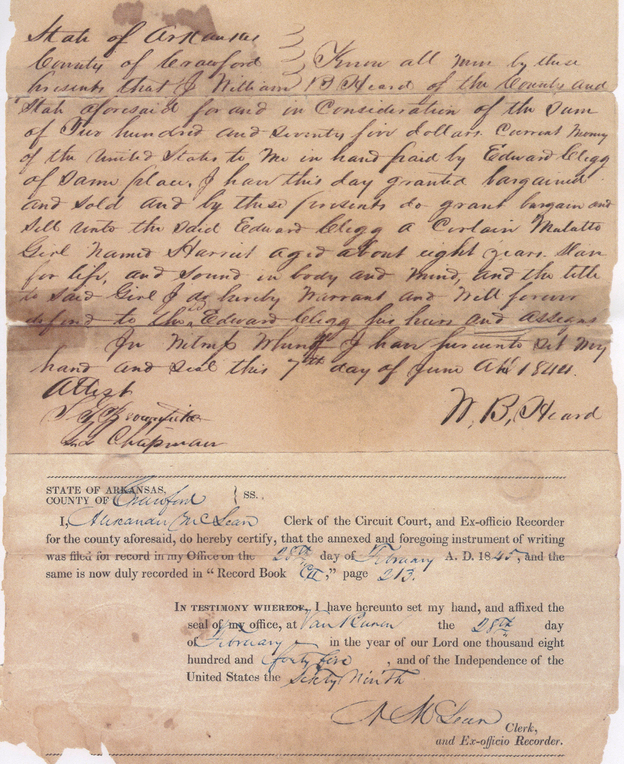 State of Arkansas
County of Crawford } Know all men by these
Presents that I William B Heard of the County and
State aforesaid for and in Consideration of the Sum
of Two hundred and seventy five dollars. Current Money
of the United States to Me in hand paid by Edward Clegg
of same place. I have this day granted bargained
and sold and by these presents do grant bargain and
sell unto the said Edward Clegg a Certain Mulatto
Girl Named Harriet aged about eight years. Slave
for life, and sound in body and mind, and the title
to said Girl I do hereby Warrant and Will forever
defend to the sd Edward Clegg his heirs and assigns
In Witness Whereof I have hereunto set my
hand and seal this 7th day of June AD 1844.
Attest
W. B. Heard
Chapman
STATE OF ARKANSAS,
COUNTY OF Crawford } SS.
I, Alexander McLean Clerk of the Circuit Court, and Ex-officio Recorder
for the county aforesaid, do hereby certify, that the annexed and foregoing instrument of writing
was filed for record in my Office on the 28th day of February A. D. 1845, and the
same is now duly recorded in "Record Book " page 213.
IN TESTIMONY WHEREOF, I have hereunto set my hand, and affixed the
seal of my office, at Van Buren the 28th day
of February in the year of our Lord one thousand eight
hundred and forty five , and of the Independence of the
United States the Sixty Ninth
A McLean Clerk,
and Ex-officio Recorder.